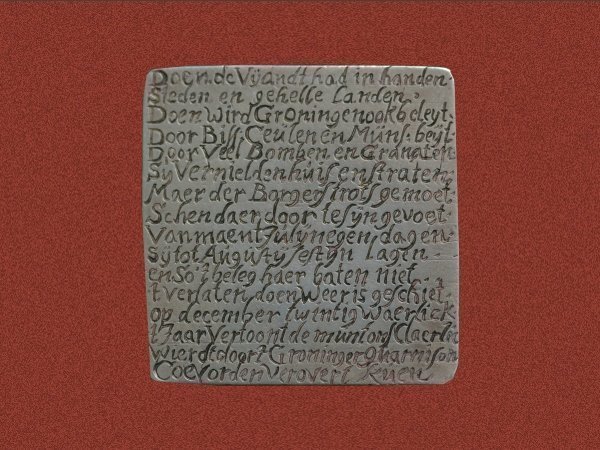 Doen de Vÿandt had in handen.
Steden en gehelle Landen.
Doen wird Groningen ook beleyt.
Door Biss. Ceulen en Muns. beÿt.
Door Veel Bomben en Granaten
Sÿ Vernielden huisen straten
Maer der Borger trots gemoet.
Schendaer door te sÿn gevoet.
Van maent Julÿ negen dagen
Sÿ tot August sestÿn lagen
en So't beleg haer baten niet.
t verlaten doen Weer is geschiet.
op december twintig Waerlick
t Jaar Vertoont de munt ons Claerlick
wierdt door t Groninger Guarnison
Coevorden verovert